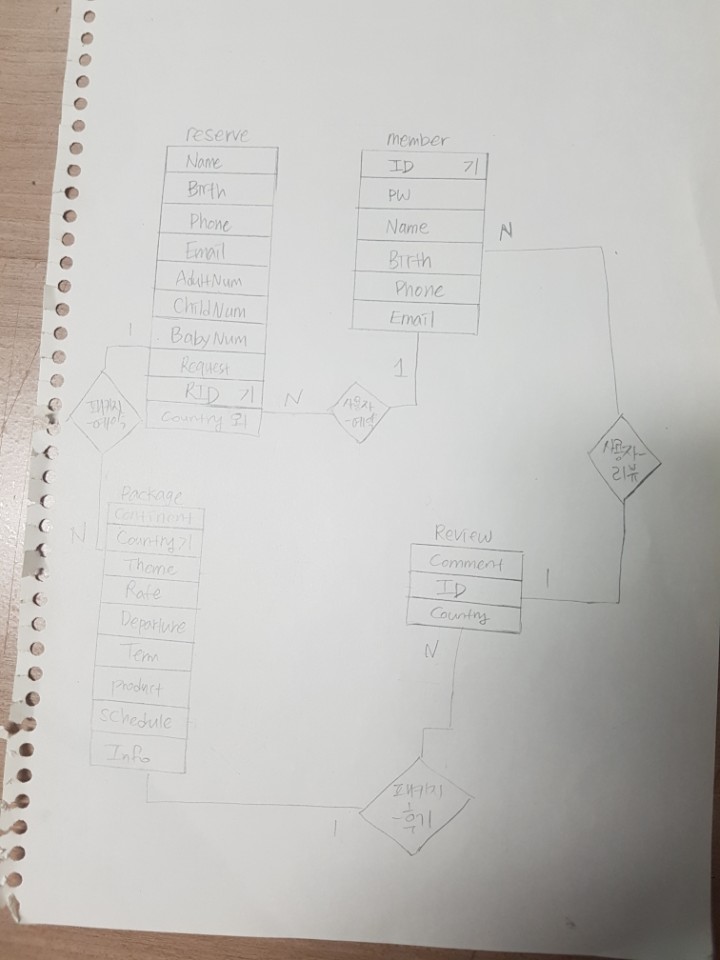 reserve
Name
Birth
Phone
Email
AdultNum
ChildNum
BabyNum
Request
RID 기
Country 외
member
ID 기
PW
Name
Birth
Phone
Email
N
1
N
사용자
-예약
1
패키지
-예약
N
사용자-
리뷰
1
Package
Continent
Country 기
Thome
Rate
Departure
Term
product
schedule
Info
Review
Comment
ID
Country
N
패키지
-후기
1